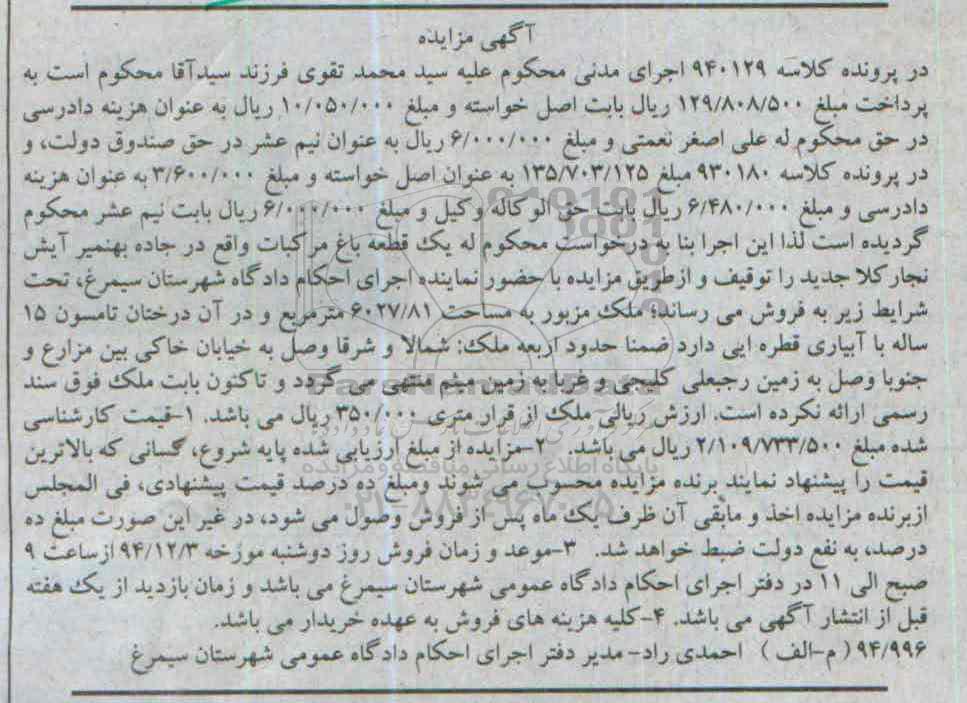 آگهی مزایده
در پرونده کلاسه ۹۴۰۱۲۹ اجرای مدنی محکوم علیه سید محمد تقوی فرزند سیدآقا محکوم است به
پرداخت مبلغ ۱۲۹/۸۰۸/۵۰۰ ریال بابت اصل خواسته و مبلغ ۱۰/۰۵۰/۰۰۰ ریال به عنوان هزینه دادرسی
در حق محکوم له علی اصغر نعمتی و مبلغ ۶/۰۰۰/۰۰۰ ریال به عنوان نیم عشر در حق صندوق دولت، و
در پرونده کلاسه ۹۳۰۱۸۰ مبلغ ۱۳۵/۷۰۳/۱۲۵ به عنوان اصل خواسته و مبلغ ۳/۶۰۰/۰۰۰ به عنوان هزینه
دادرسی و مبلغ ۶/۴۸۰/۰۰۰ ریال بابت حق الوکاله وکیل و مبلغ ۶/۰۰۰/۰۰۰ ریال بابت نیم عشر محکوم
گردیده است لذا این اجرا بنا به درخواست محکوم له یک قطعه باغ مرکبات واقع در جاده بهنمیر آیش
نجارکلا جدید را توقیف و ازطریق مزایده با حضور نماینده اجرای احکام دادگاه شهرستان سیمرغ، تحت
شرایط زیر به فروش می رساند؛ ملک مزبور به مساحت ۶۰۲۷/۸۱ مترمربع و در آن درختان تامسون ۱۵
ساله با آبیاری قطره ایی دارد ضمنا حدود اربعه ملک: شمالا و شرقا وصل به خیابان خاکی بین مزارع و
جنوبا وصل به زمین رجبعلی کلیجی و غربا به زمین میثم منتهی می گردد و تاکنون بابت ملک فوق سند
رسمی ارائه نکرده است. ارزش ریالی ملک از قرار متری ۳۵۰/۰۰۰ ریال می باشد. ۱-قیمت کارشناسی
شده مبلغ ۲/۱۰۹/۷۳۳/۵۰۰ ریال می باشد. ۲-مزایده از مبلغ ارزیابی شده پایه شروع، کسانی که بالاترین
قیمت را پیشنهاد نمایند برنده مزایده محسوب می شوند ومبلغ ده درصد قیمت پیشنهادی، فی المجلس
ازبرنده مزایده اخذ و مابقی آن ظرف یک ماه پس از فروش وصول می شود، در غیر این صورت مبلغ ده
درصد، به نفع دولت ضبط خواهد شد. ۳-موعد و زمان فروش روز دوشنبه مورخه ۹۴/۱۲/۳ ازساعت ۹
صبح الی ۱۱ در دفتر اجرای احکام دادگاه عمومی شهرستان سیمرغ می باشد و زمان بازدید از یک هفته
قبل از انتشار آگهی می باشد. ۴-کلیه هزینه های فروش به عهده خریدار می باشد.
۹۴/۹۹۶ ( م-الف ) احمدی راد- مدیر دفتر اجرای احکام دادگاه عمومی شهرستان سیمرغ
پایگاه اطلاع رسانی مناقصه ومزایده